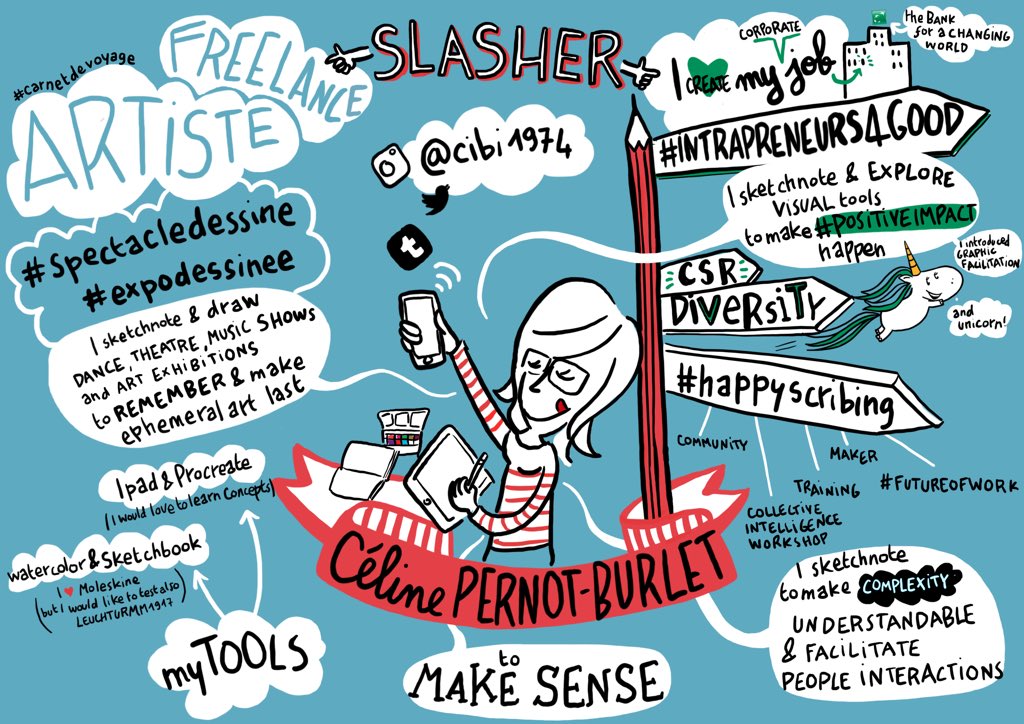 #carnetdevoyage
FREELANCE
ARTiSTE
SLASHER
CORPORATE
I CREATE my job
the BANK
for a CHANGING
WORLD
@cibi1974
t
#spectacledessine
#expodessinee
I sketchnote & draw
DANCE, THEATRE, MUSIC SHOWS
and ART EXHIBITIONS
to REMEMBER & make
ephemeral art last
#INTRAPRENEURS4GOOD
I sketchnote & EXPLORE
VISUAL tools
to make #POSITIVEIMPACT
happen
CSR
DiVERSiTY
I introduced
GRAPHIC
FACILITATION
and
unicorn!
#happyscribing
COMMUNITY
COLLECTIVE
INTELLIGENCE
WORKSHOP
TRAINING
MAKER
#FUTUREOFWORK
Ipad & Procreate
(I would love to learn Concepts)
watercolor & Sketchbook
I ♥ Moleskine
(but I would like to test also)
LEUCHTURMM1917
my TOOLS
Céline PERNOT-BURLET
to
MAKE SENSE
I sketchnote
to make COMPLEXITY
UNDERSTANDABLE
& FACILITATE
PEOPLE INTERACTIONS